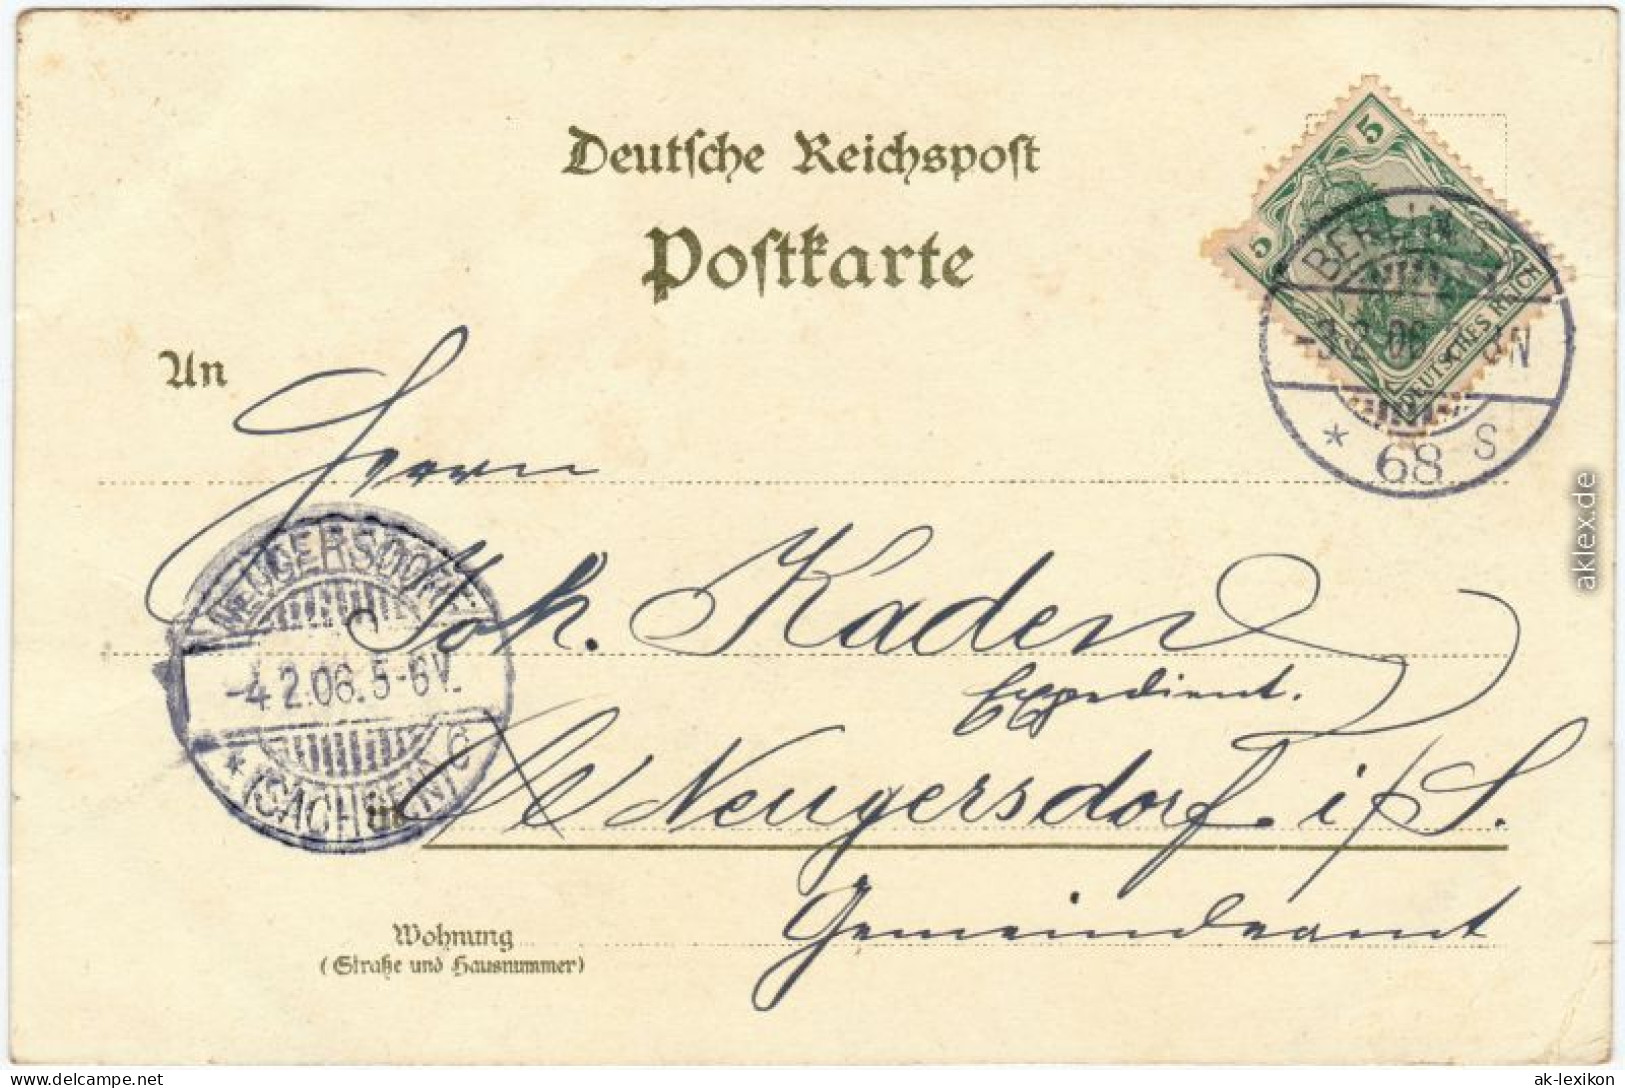 Deutsche Reichspost
Postkarte
An
5
5
DEUTSCHES REICH
BERLIN
-3.2.06
N
* 68 S
Herrn
NEUGERSDORF
-4.2.06.5-6V.
* (SACHSEN) c
Joh. Kaden
Expedient.
in
Neugersdorf i/S.
Gemeindeamt
Wohnung
(Straße und Hausnummer)
aklex.de
delcampe.net
ak-lexikon